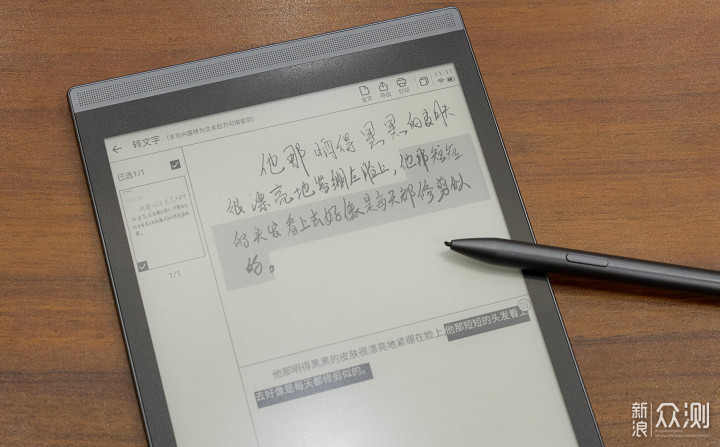 11:11
全文 导出 打印
← 转文字 (手写内容转为文本后方可搜索到)
已选1/1
1/1
他那明得黑黑的皮肤
很漂亮地紧绷在脸上,他那短短
的头发看上去好像是每天都修剪似
的。
他那明得黑黑的皮肤很漂亮地紧绷在脸上,他那短短的头发看上
去好像是每天都修剪似的。
新浪 众测